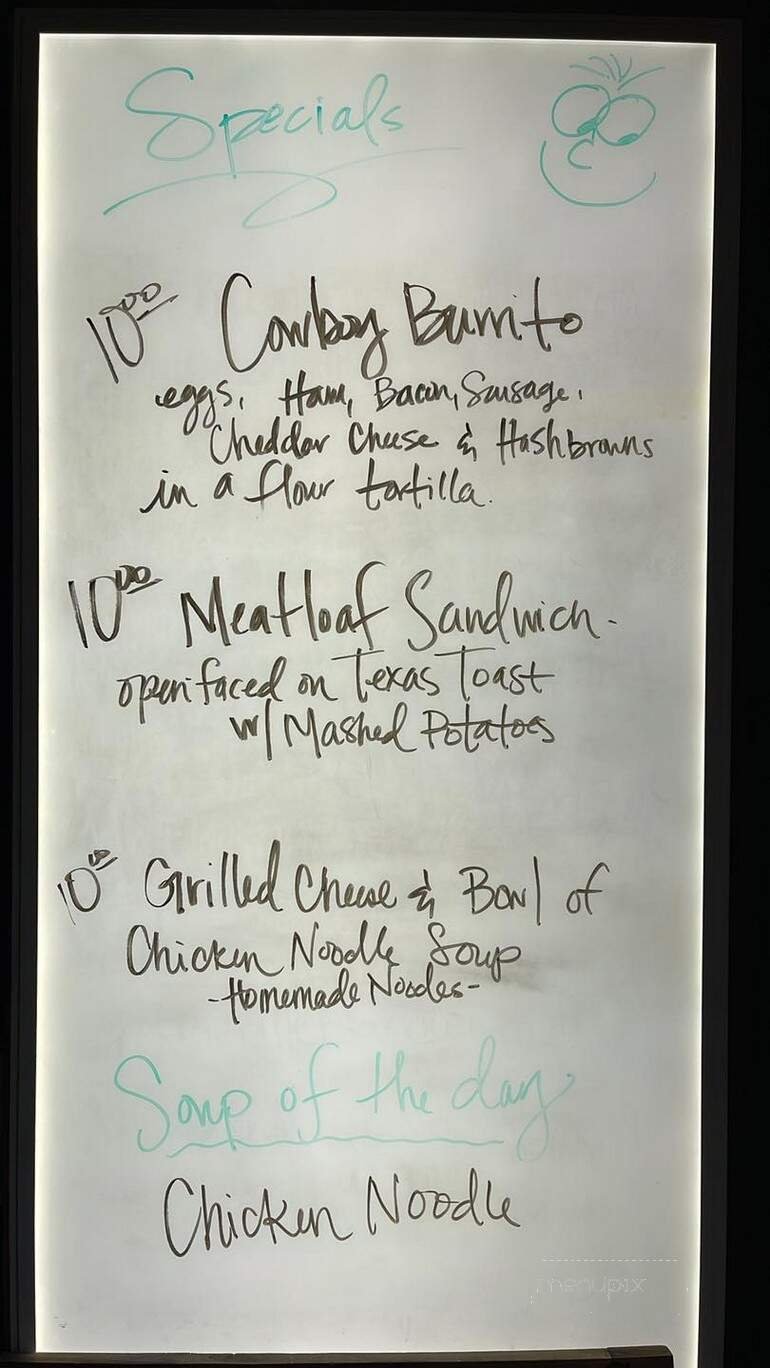 Specials
10.00 Cowboy Burrito
eggs, Ham, Bacon, Sausage,
Cheddar Cheese & Hashbrowns
in a flour tortilla.
10.00 Meatloaf Sandwich -
open faced on Texas Toast
w/ Mashed Potatoes
10.00 Grilled Cheese & Bowl of
Chicken Noodle Soup
- Homemade Noodles -
Soup of the day
Chicken Noodle
menupix